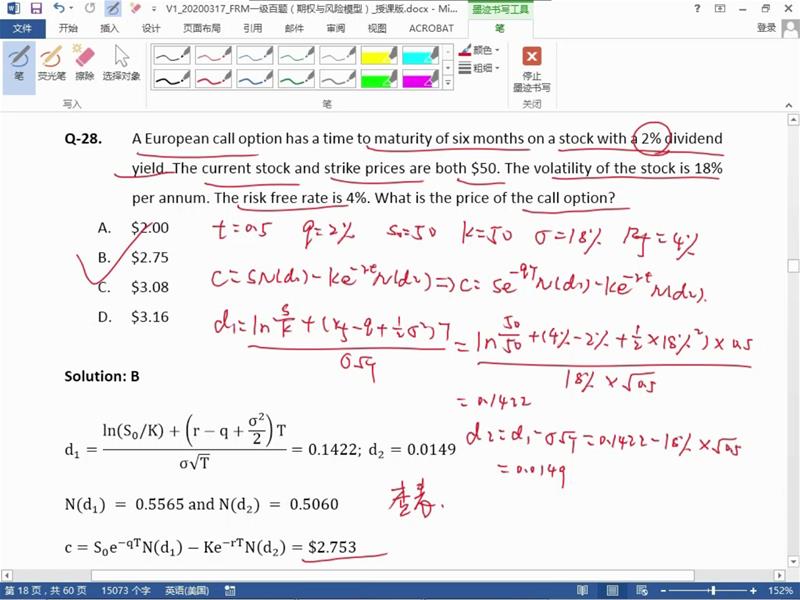 V1_20200317_FRM一级百题（期权与风险模型）_授课版.docx - Mi...
墨迹书写工具
登录
文件 开始 插入 设计 页面布局 引用 邮件 审阅 视图 ACROBAT 笔
笔 荧光笔 擦除 选择对象
颜色
粗细
停止
墨迹书写
写入 笔 关闭
Q-28. A European call option has a time to maturity of six months on a stock with a 2% dividend
yield. The current stock and strike prices are both $50. The volatility of the stock is 18%
per annum. The risk free rate is 4%. What is the price of the call option?
A. $2.00
B. $2.75
C. $3.08
D. $3.16
t=0.5 q=2% S₀=50 K=50 σ=18% Rf=4%
C=SN(d₁)-Ke^-rt N(d₂)⇒C=Se^-qT N(d₁)-Ke^-rt N(d₂).
d₁=(ln S/K+(rf-q+½σ²)T)/(σ√T)=(ln 50/50+(4%-2%+½×18%²)×0.5)/(18%×√0.5)
=0.1422
d₂=d₁-σ√T=0.1422-18%×√0.5
=0.0149
Solution: B
d₁ = (ln(S₀/K) + (r − q + σ²/2)T)/(σ√T) = 0.1422; d₂ = 0.0149
N(d₁) = 0.5565 and N(d₂) = 0.5060
查表.
c = S₀e^−qT N(d₁) − Ke^−rT N(d₂) = $2.753
第 18 页，共 60 页 15073 个字 英语(美国) 152%